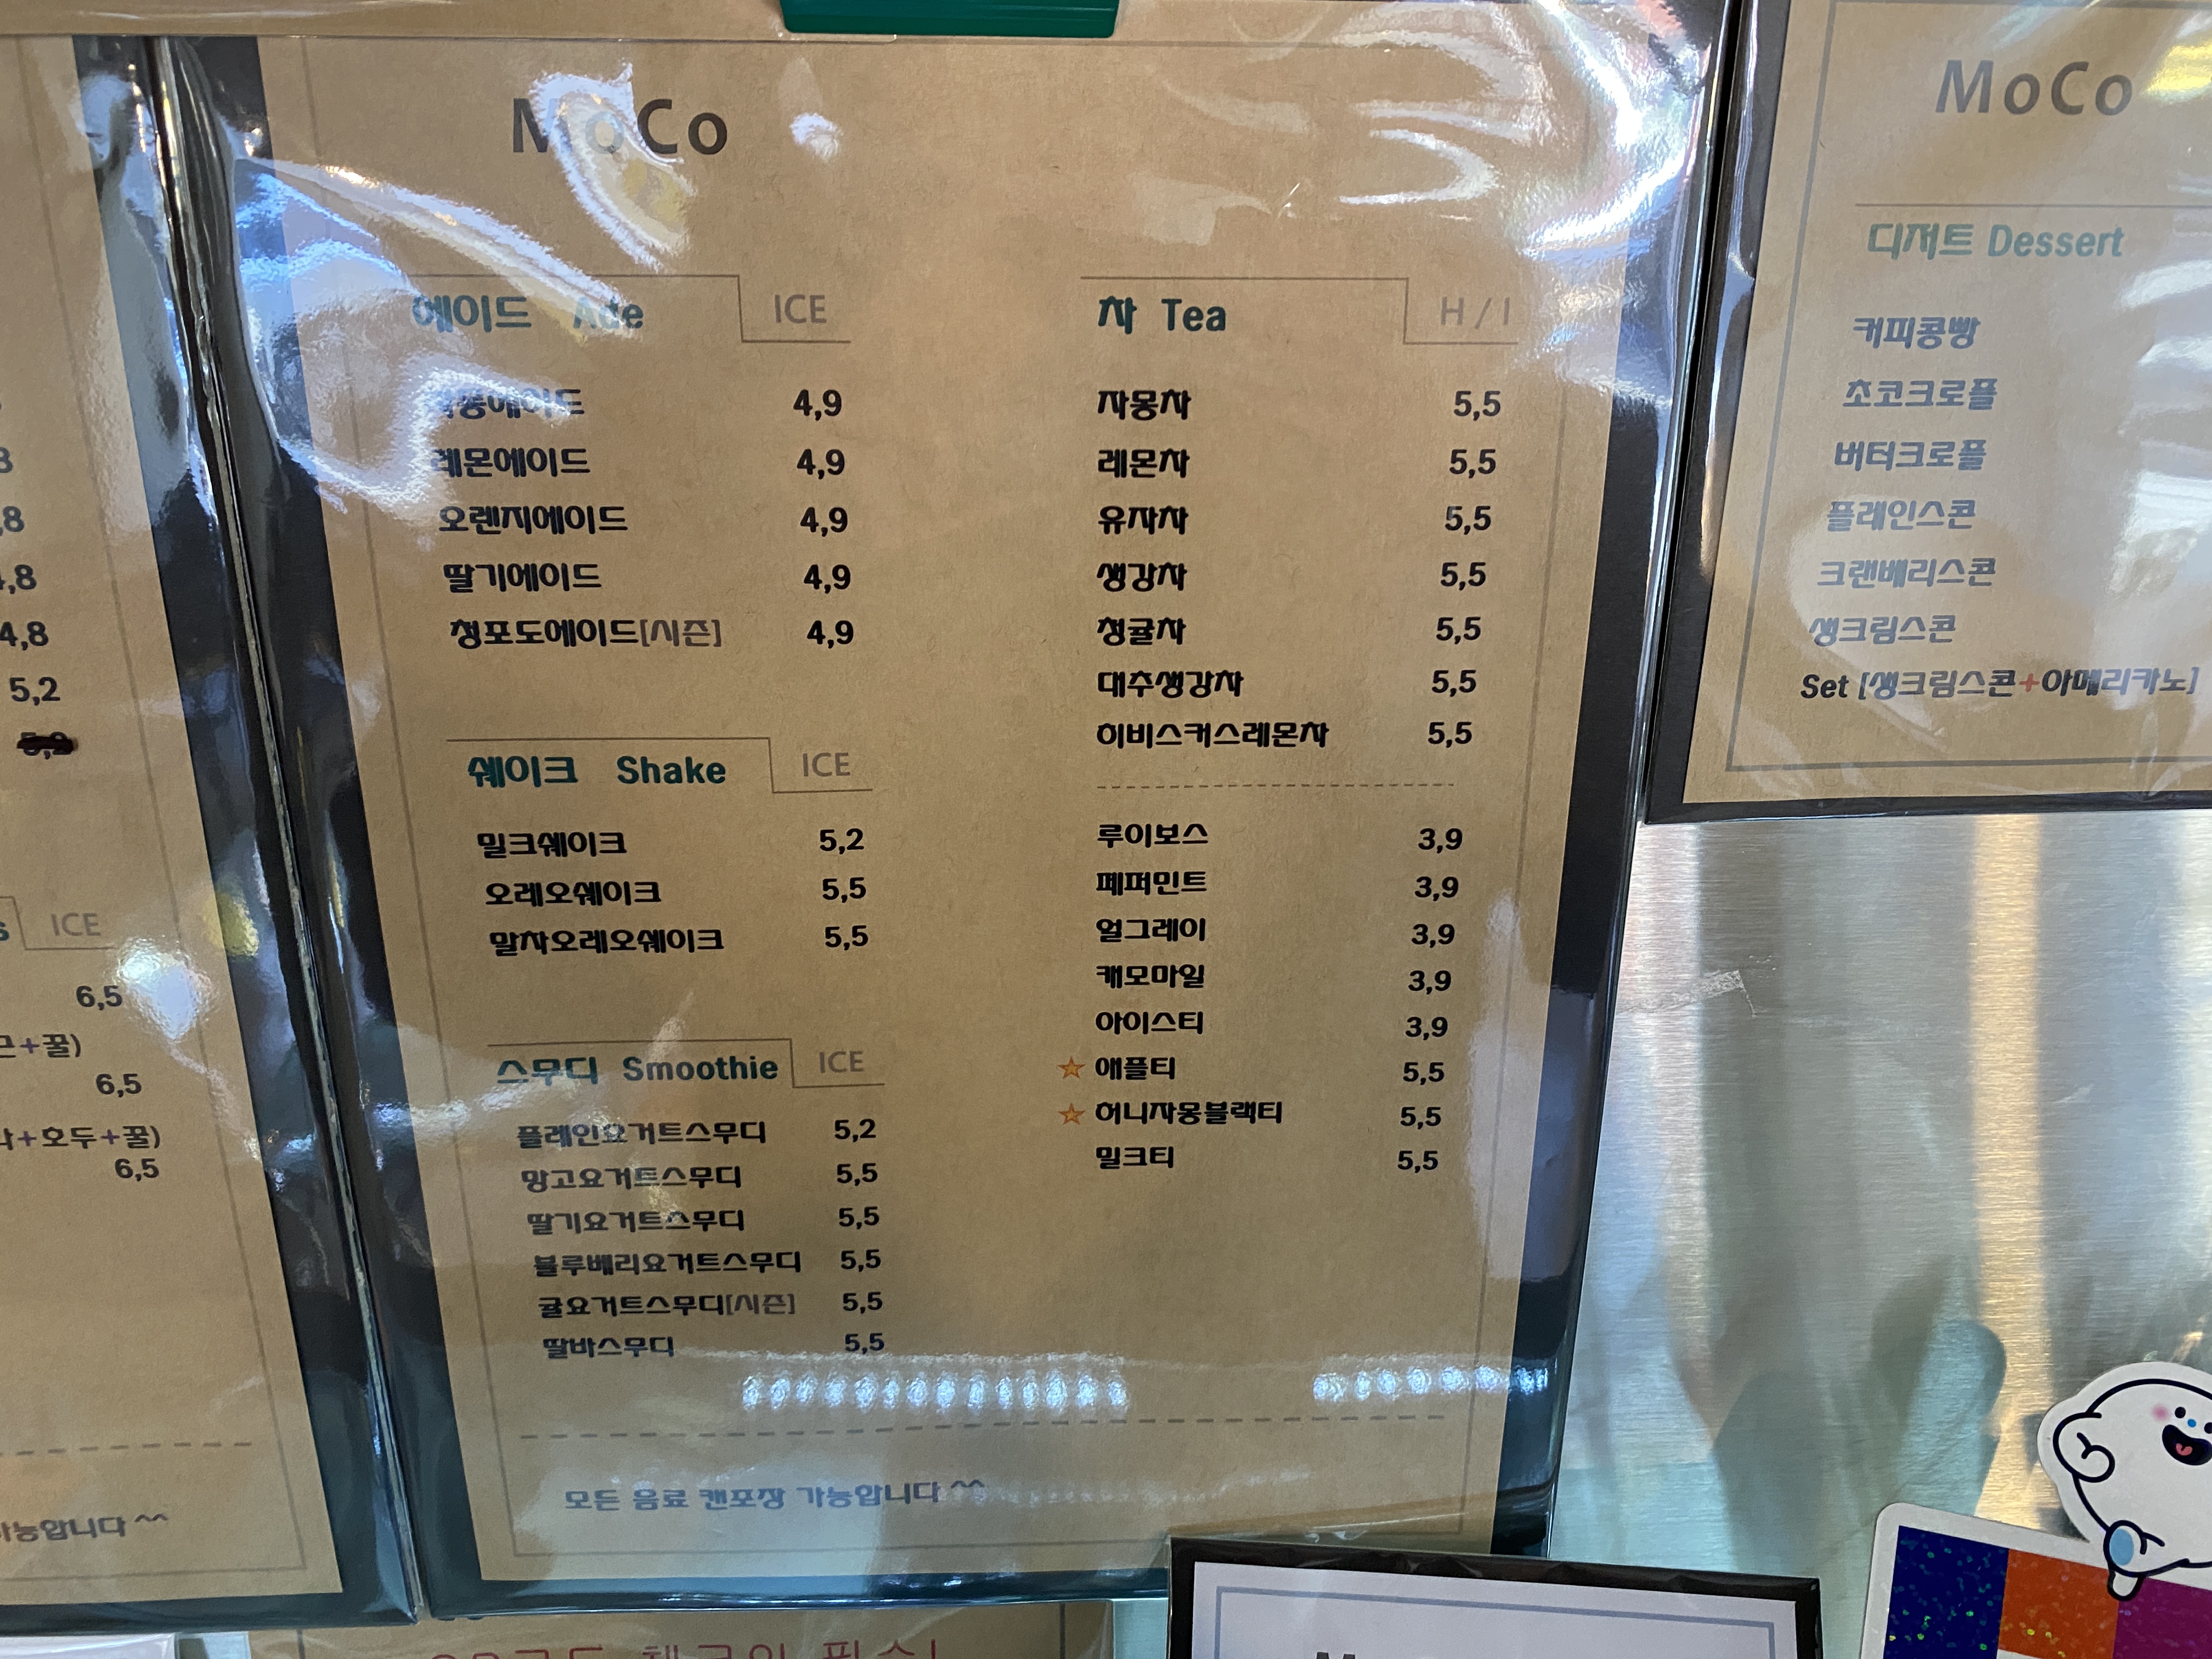 8
,8
,8
4,8
5,2
s ICE
6,5
근+꿀)
6,5
+호두+꿀)
6,5
가능합니다 ^^
MoCo
에이드 Ade ICE
자몽에이드 4,9
레몬에이드 4,9
오렌지에이드 4,9
딸기에이드 4,9
청포도에이드[시즌] 4,9
쉐이크 Shake ICE
밀크쉐이크 5,2
오레오쉐이크 5,5
말차오레오쉐이크 5,5
스무디 Smoothie ICE
플레인요거트스무디 5,2
망고요거트스무디 5,5
딸기요거트스무디 5,5
블루베리요거트스무디 5,5
귤요거트스무디[시즌] 5,5
딸바스무디 5,5
차 Tea H / I
자몽차 5,5
레몬차 5,5
유자차 5,5
생강차 5,5
청귤차 5,5
대추생강차 5,5
히비스커스레몬차 5,5
루이보스 3,9
페퍼민트 3,9
얼그레이 3,9
캐모마일 3,9
아이스티 3,9
애플티 5,5
허니자몽블랙티 5,5
밀크티 5,5
모든 음료 캔포장 가능합니다 ^^
MoCo
디저트 Dessert
커피콩빵
초코크로플
버터크로플
플레인스콘
크랜베리스콘
생크림스콘
Set [생크림스콘+아메리카노]